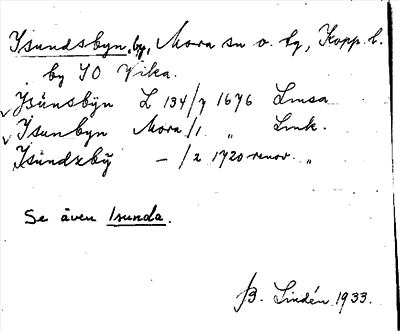 Isundsbyn, by, Mora sn o. tg, Kopp. l.
by SO Vika.
v Jsünsbÿn L 134/7 1676 Lmsa
v Isunbyn Mora/1 „ Lmk.
Isündzbÿ — /2 1720 renov. „
Se även Isunda.
B. Lindén 1933.